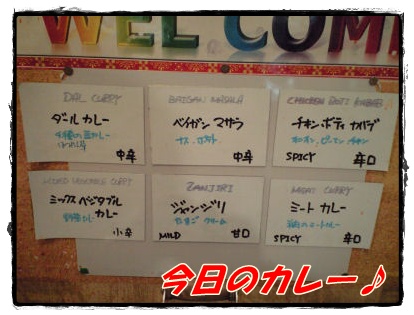 WELCOM
DAL CURRY
ダール カレー
中辛
BAIGAN MASALA
ベイガン マサラ
ナス、
中辛
CHICKEN BOTI KABAB
チキン・ボティ カバブ
チキン
SPICY 辛口
MIXED VEGETABLE CURRY
ミックス ベジタブル
カレー
野菜カレー
小辛
ZANJIRI
ジャンジリ
たまご クリーム
MILD 甘口
MEAT CURRY
ミート カレー
SPICY 辛口
今日のカレー♪